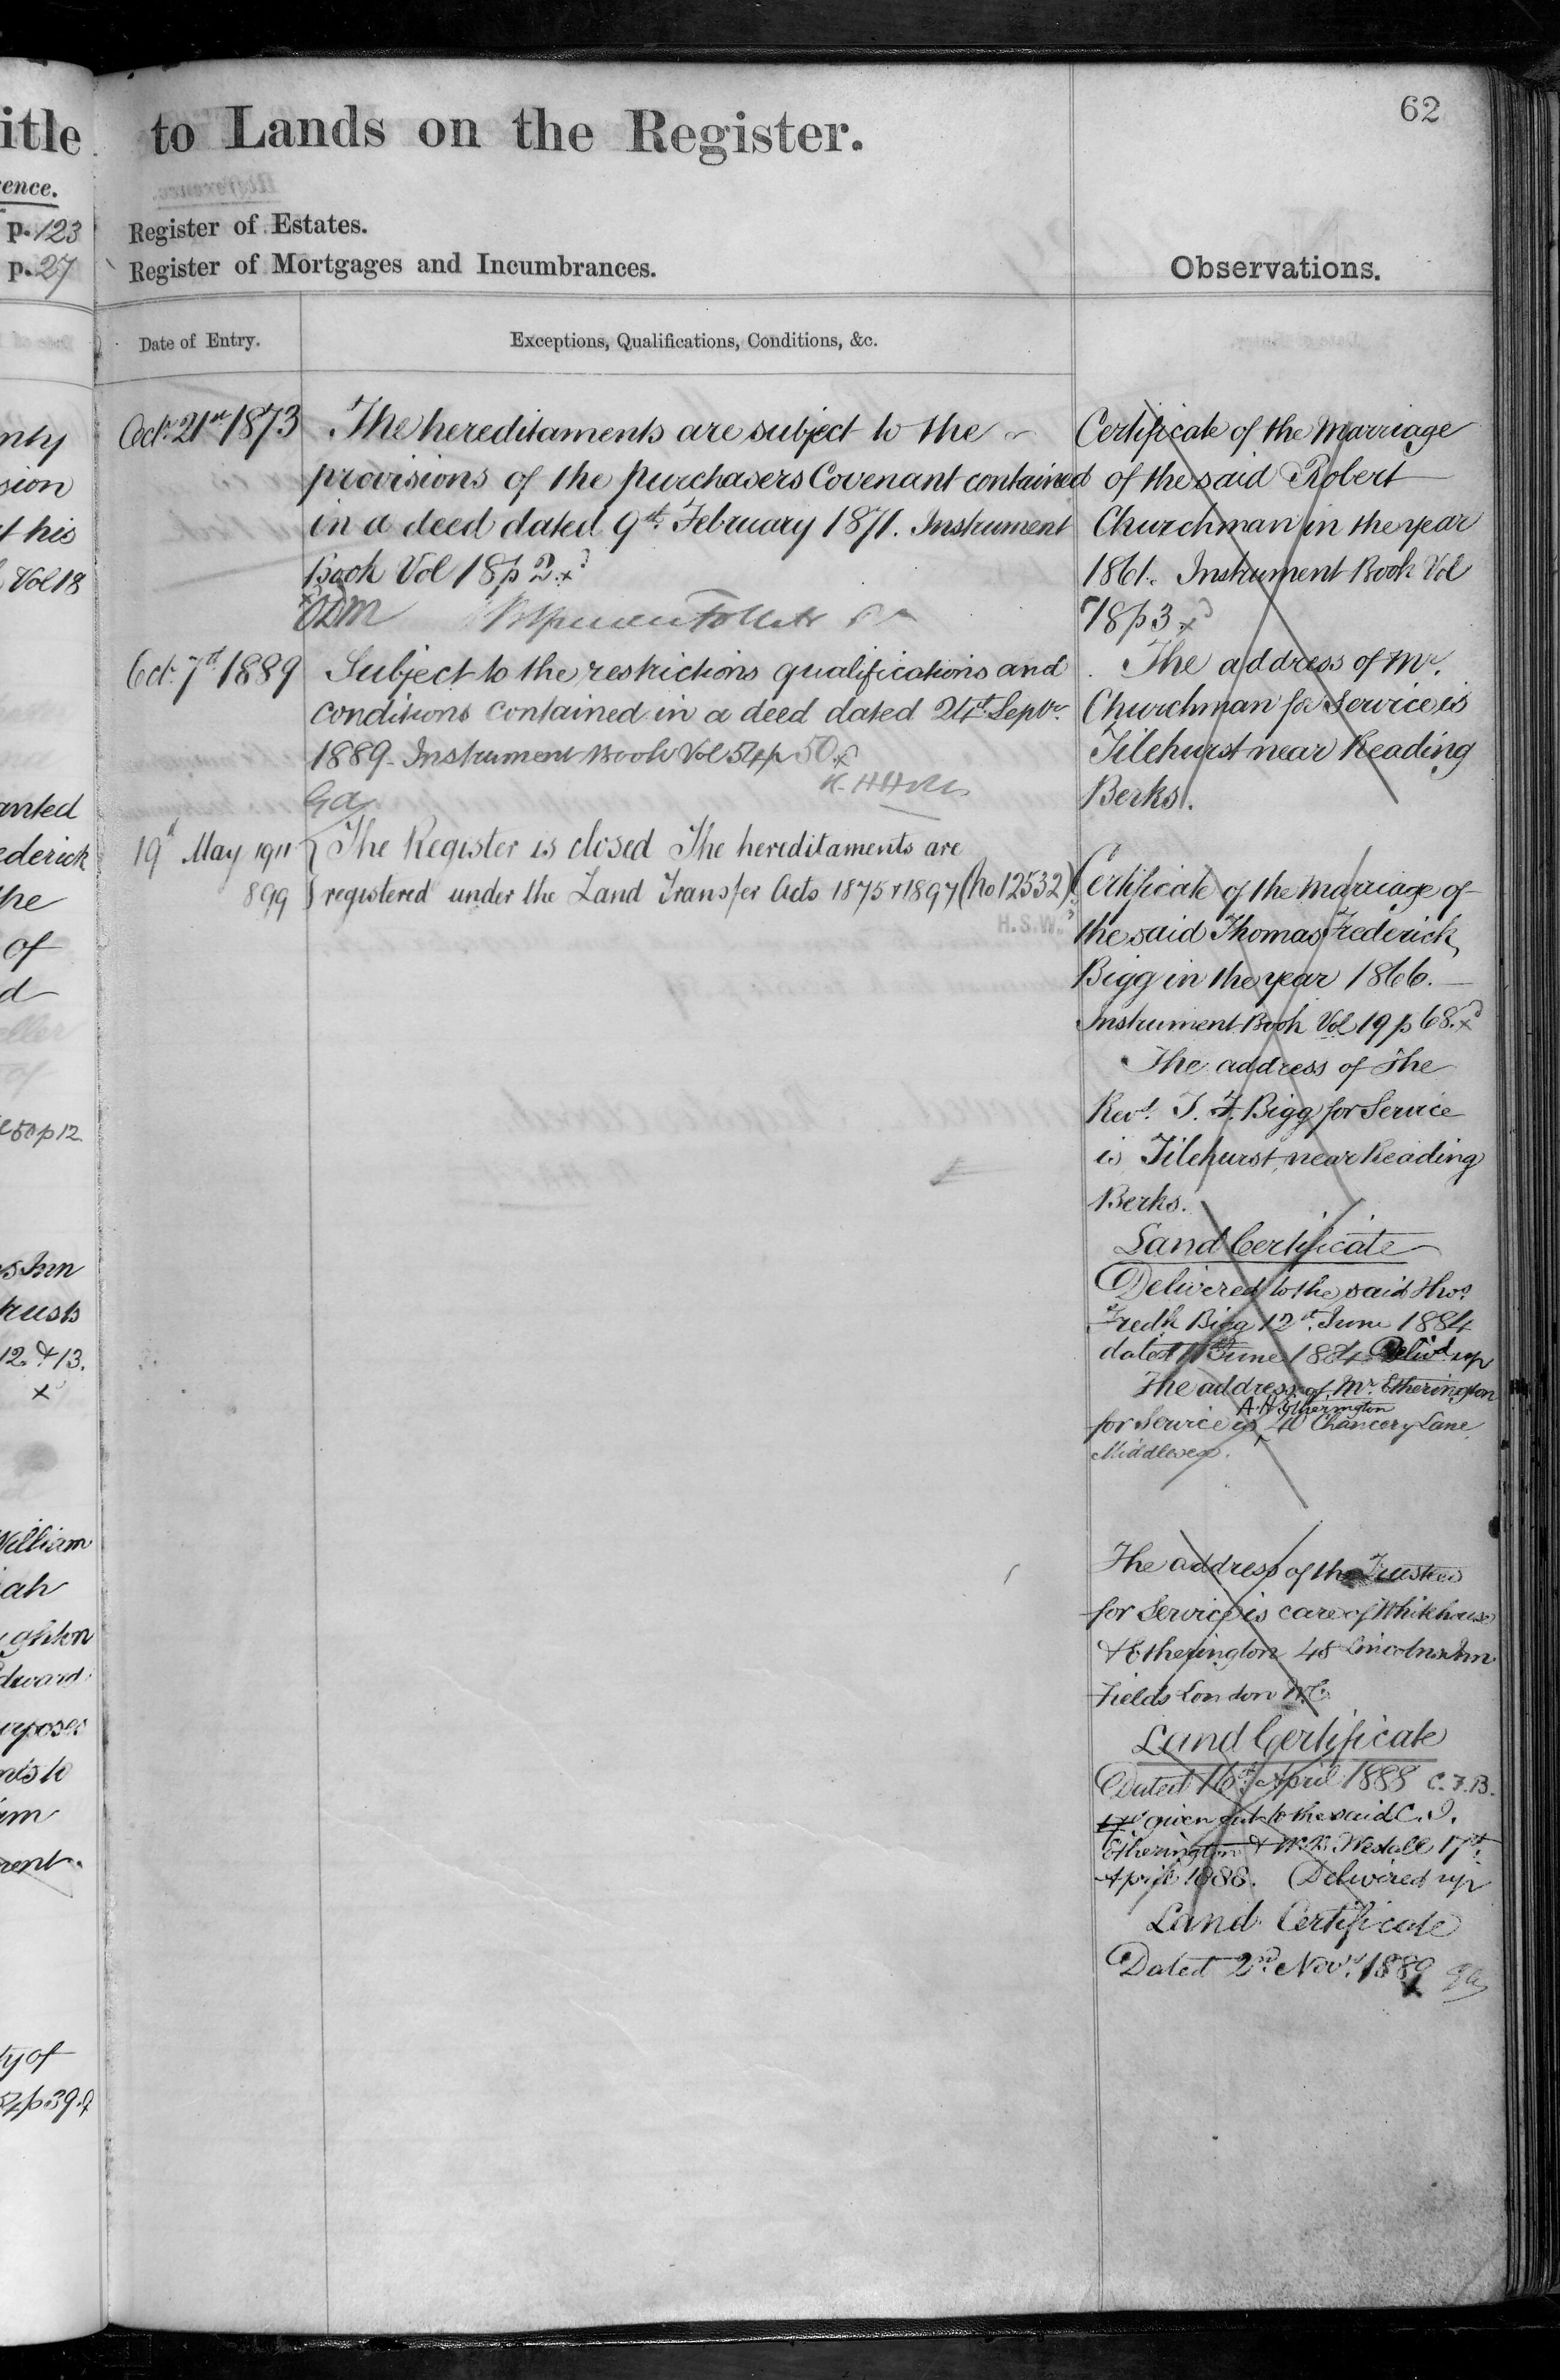 itle
ence.
p. 123
p. 27
nty
sion
t his
Vol 18
anted
ederick
the
of
d
eller
of
50 p 12
s Inn
trusts
12. & 13.
x
William
ah
ghton
dward
urposes
rent.
ty of
p. 39.
to Lands on the Register.
Register of Estates.
Register of Mortgages and Incumbrances.
Date of Entry.
Exceptions, Qualifications, Conditions, &c.
Octr. 21st 1873
The hereditaments are subject to the
provisions of the purchasers Covenant contained
in a deed dated 9th. February 1871. Instrument
Book Vol 18 p 2. x
Oct. 7th 1889
Subject to the restrictions qualifications and
conditions contained in a deed dated 24th Septr.
1889. Instrument Book Vol 54 p 50. x
Ga
19th May 1911
899
The Register is closed The hereditaments are
registered under the Land Transfer Acts 1875 & 1897 (No 12532)
H.S.W.
62
Observations.
Certificate of the Marriage
of the said Robert
Churchman in the year
1861. Instrument Book Vol
18 p 3 x
The address of Mr.
Churchman for Service is
Tilehurst near Reading
Berks.
Certificate of the Marriage of
the said Thomas Frederick
Bigg in the year 1866.
Instrument Book Vol 19 p 68. x
The address of the
Revd. T. F. Bigg for Service
is Tilehurst near Reading
Berks.
Land Certificate
Delivered to the said Thos.
Fredk Bigg 12th. June 1884
dated 11 June 1884. Delivd. up
The address of Mr. Etherington
A. H. Etherington
for service is 40 Chancery Lane
Middlesex.
The address of the Trustees
for Service is care of Whitehouse
& Etherington 48 Lincolns Inn
Fields London W.C.
Land Certificate
Dated 16th. April 1888 C.F.B.
given out to the said C. I.
Etherington & W. B. Westall 17th.
April 1888. Delivered up
Land Certificate
Dated 2nd. Novr. 1889 Ga